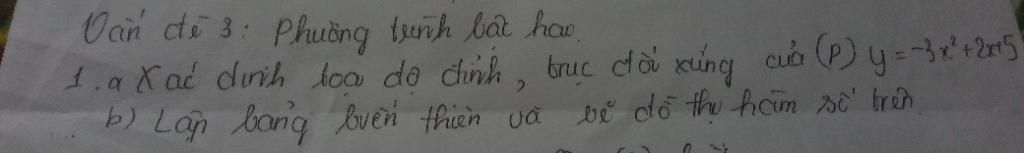 Vấn đề 3: Phương trình bậc hai.
1. a Xác định tọa độ đỉnh, trục đối xứng của (P) y = -3x² + 2x+5
b) Lập bảng biến thiên và vẽ đồ thị hàm số trên